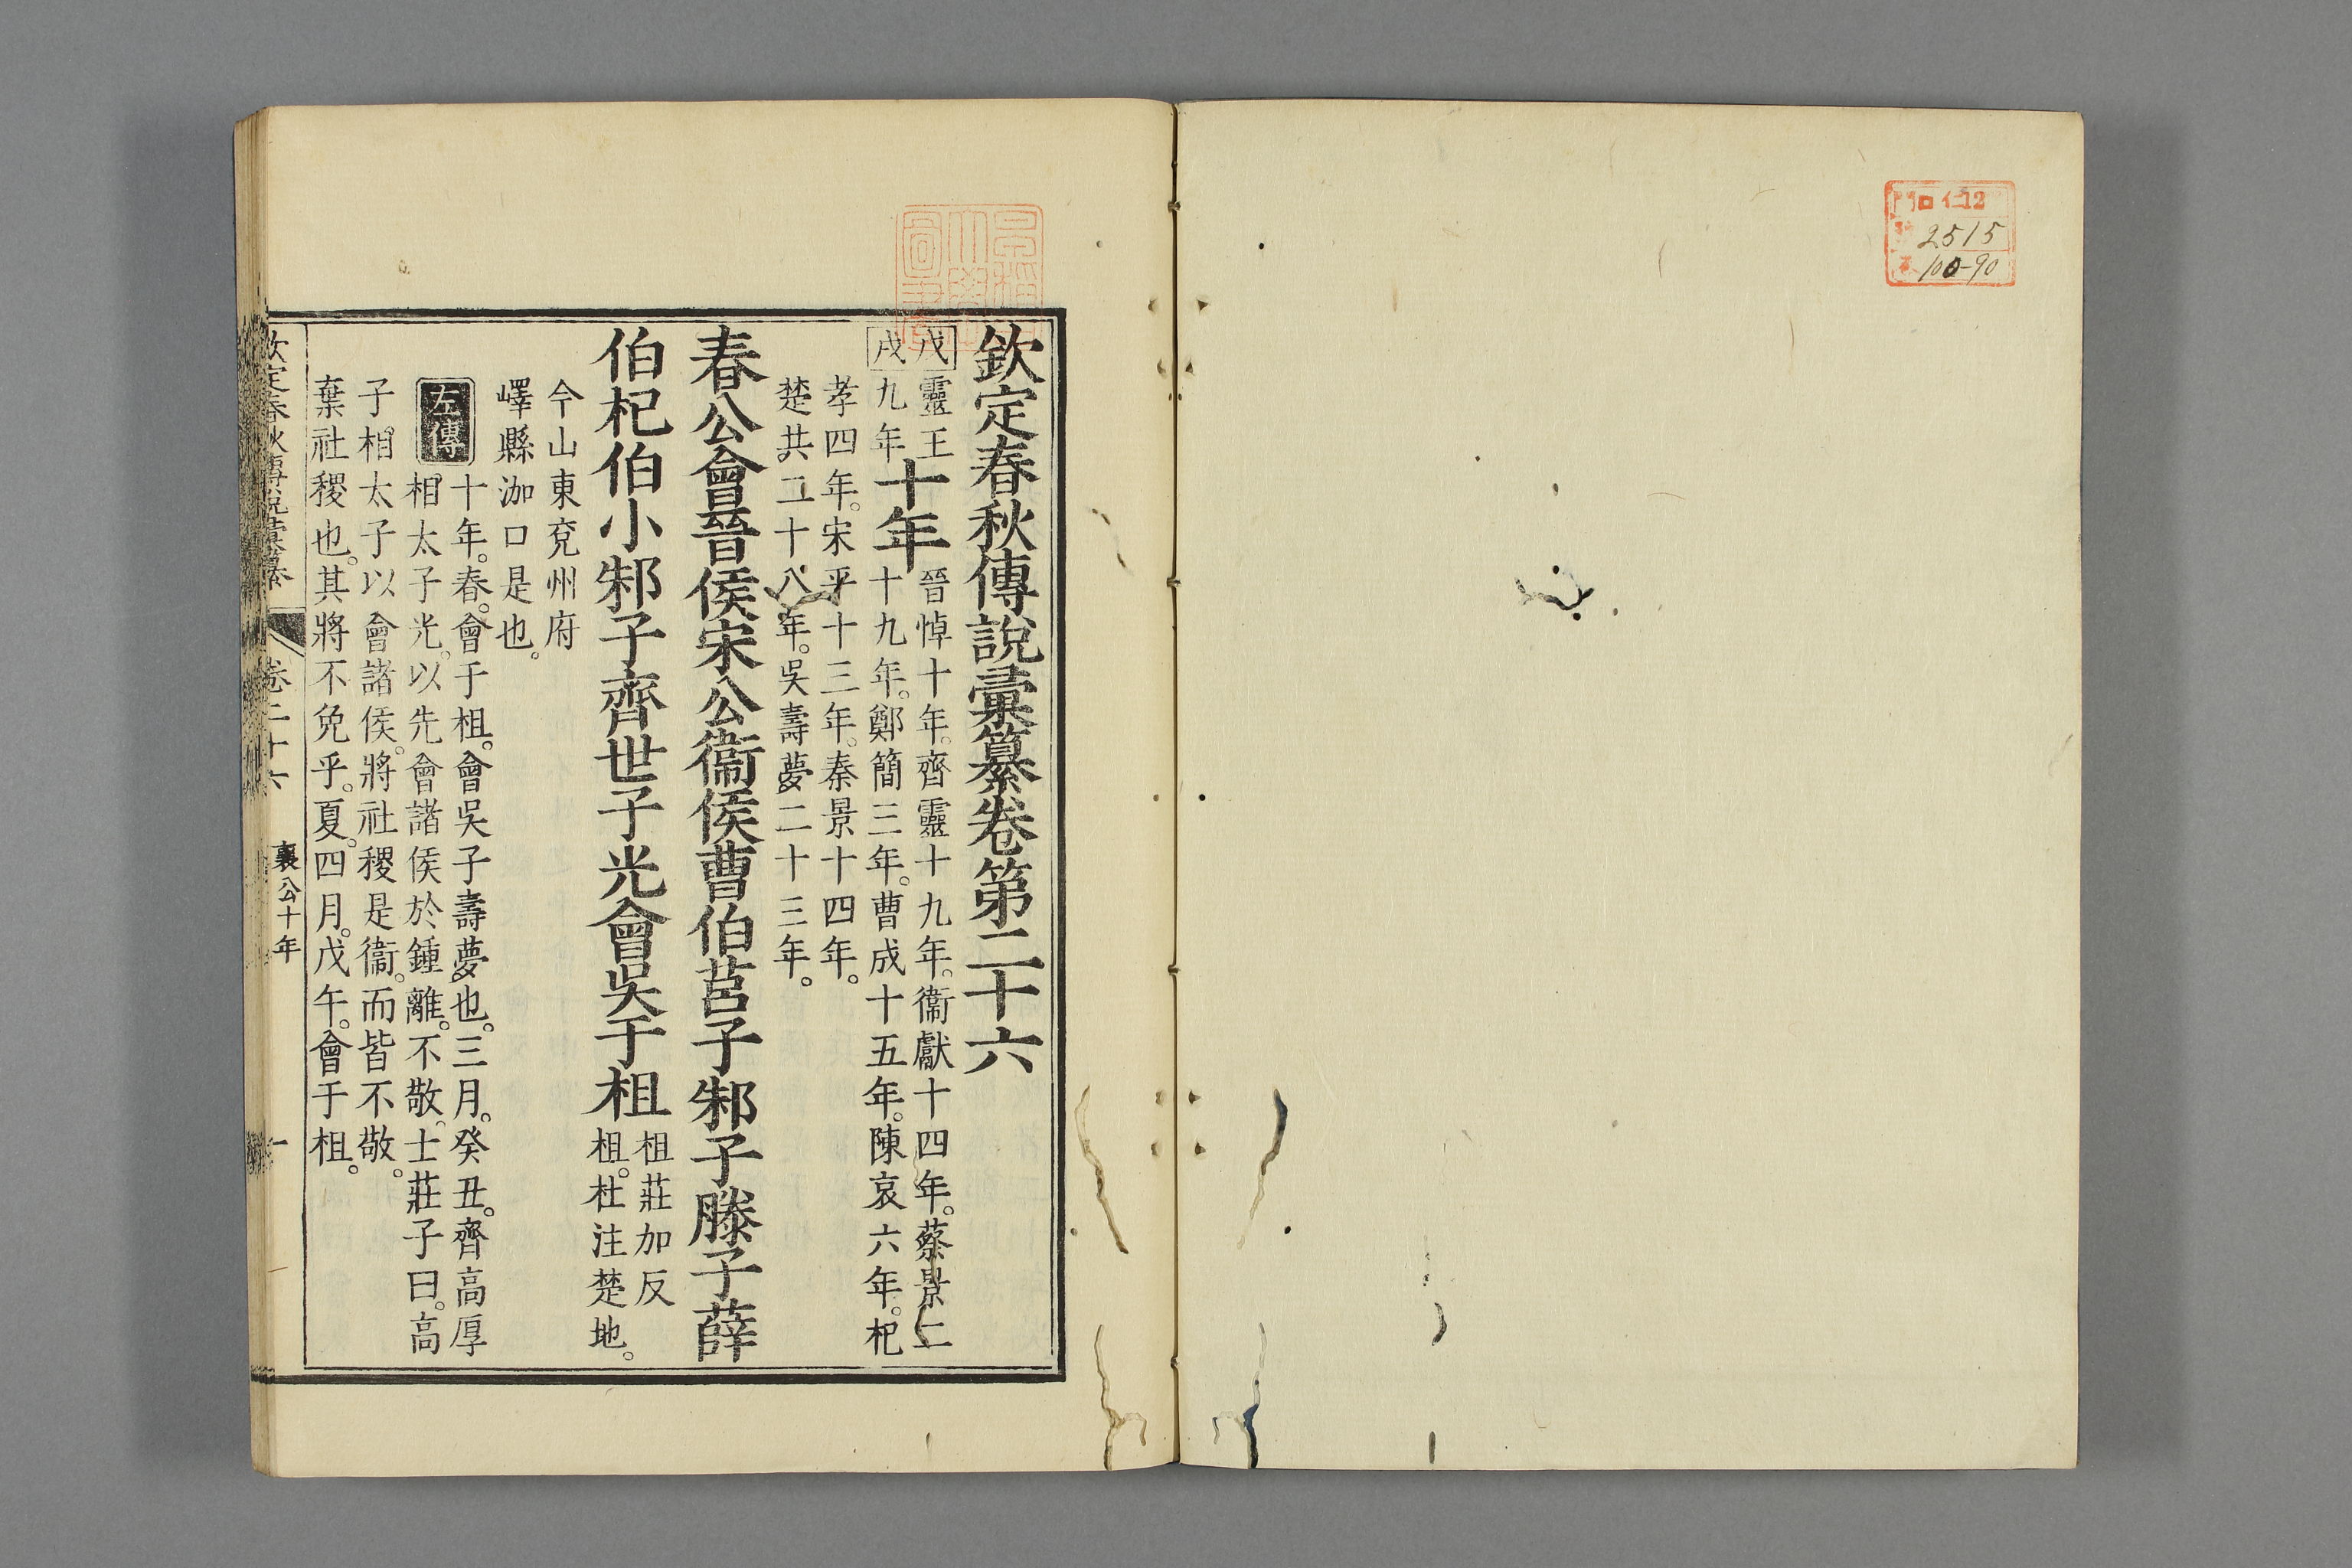 仁12
2515
100-90
欽定春秋傳說彙纂卷第二十六
戊戌
靈王九年
十年
晉悼十年。齊靈十九年。衞獻十四年。蔡景二
十九年。鄭簡三年。曹成十五年。陳哀六年。杞
孝四年。宋平十三年。秦景十四年。
楚共二十八年。吳壽夢二十三年。
春公會晉侯宋公衞侯曹伯莒子邾子滕子薛
伯杞伯小邾子齊世子光會吳于柤
柤莊加反
柤。杜注楚地。
今山東兗州府
嶧縣泇口是也。
左傳
十年。春。會于柤。會吳子壽夢也。三月。癸丑。齊高厚
相太子光。以先會諸侯於鍾離。不敬。士莊子曰。高
子相太子以會諸侯。將社稷是衞。而皆不敬。
棄社稷也。其將不免乎。夏。四月。戊午。會于柤。
欽定春秋傳說彙纂
卷二十六
襄公十年
一